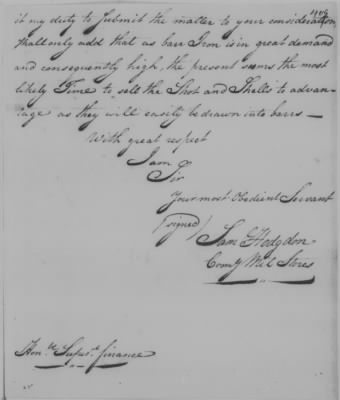 it my duty to submit the matter to your consideration
shall only add that as barr Iron is in great demand
and consequently high the present seems the most
likely Time to sell the Shot and Shells to advan-
tage as they will easily be drawn into barrs —
With great respect
I am
Sir
Your most Obedient Servant
(signed) Sam Hodgdon
Comy Mil Stores
Honble Supert finance